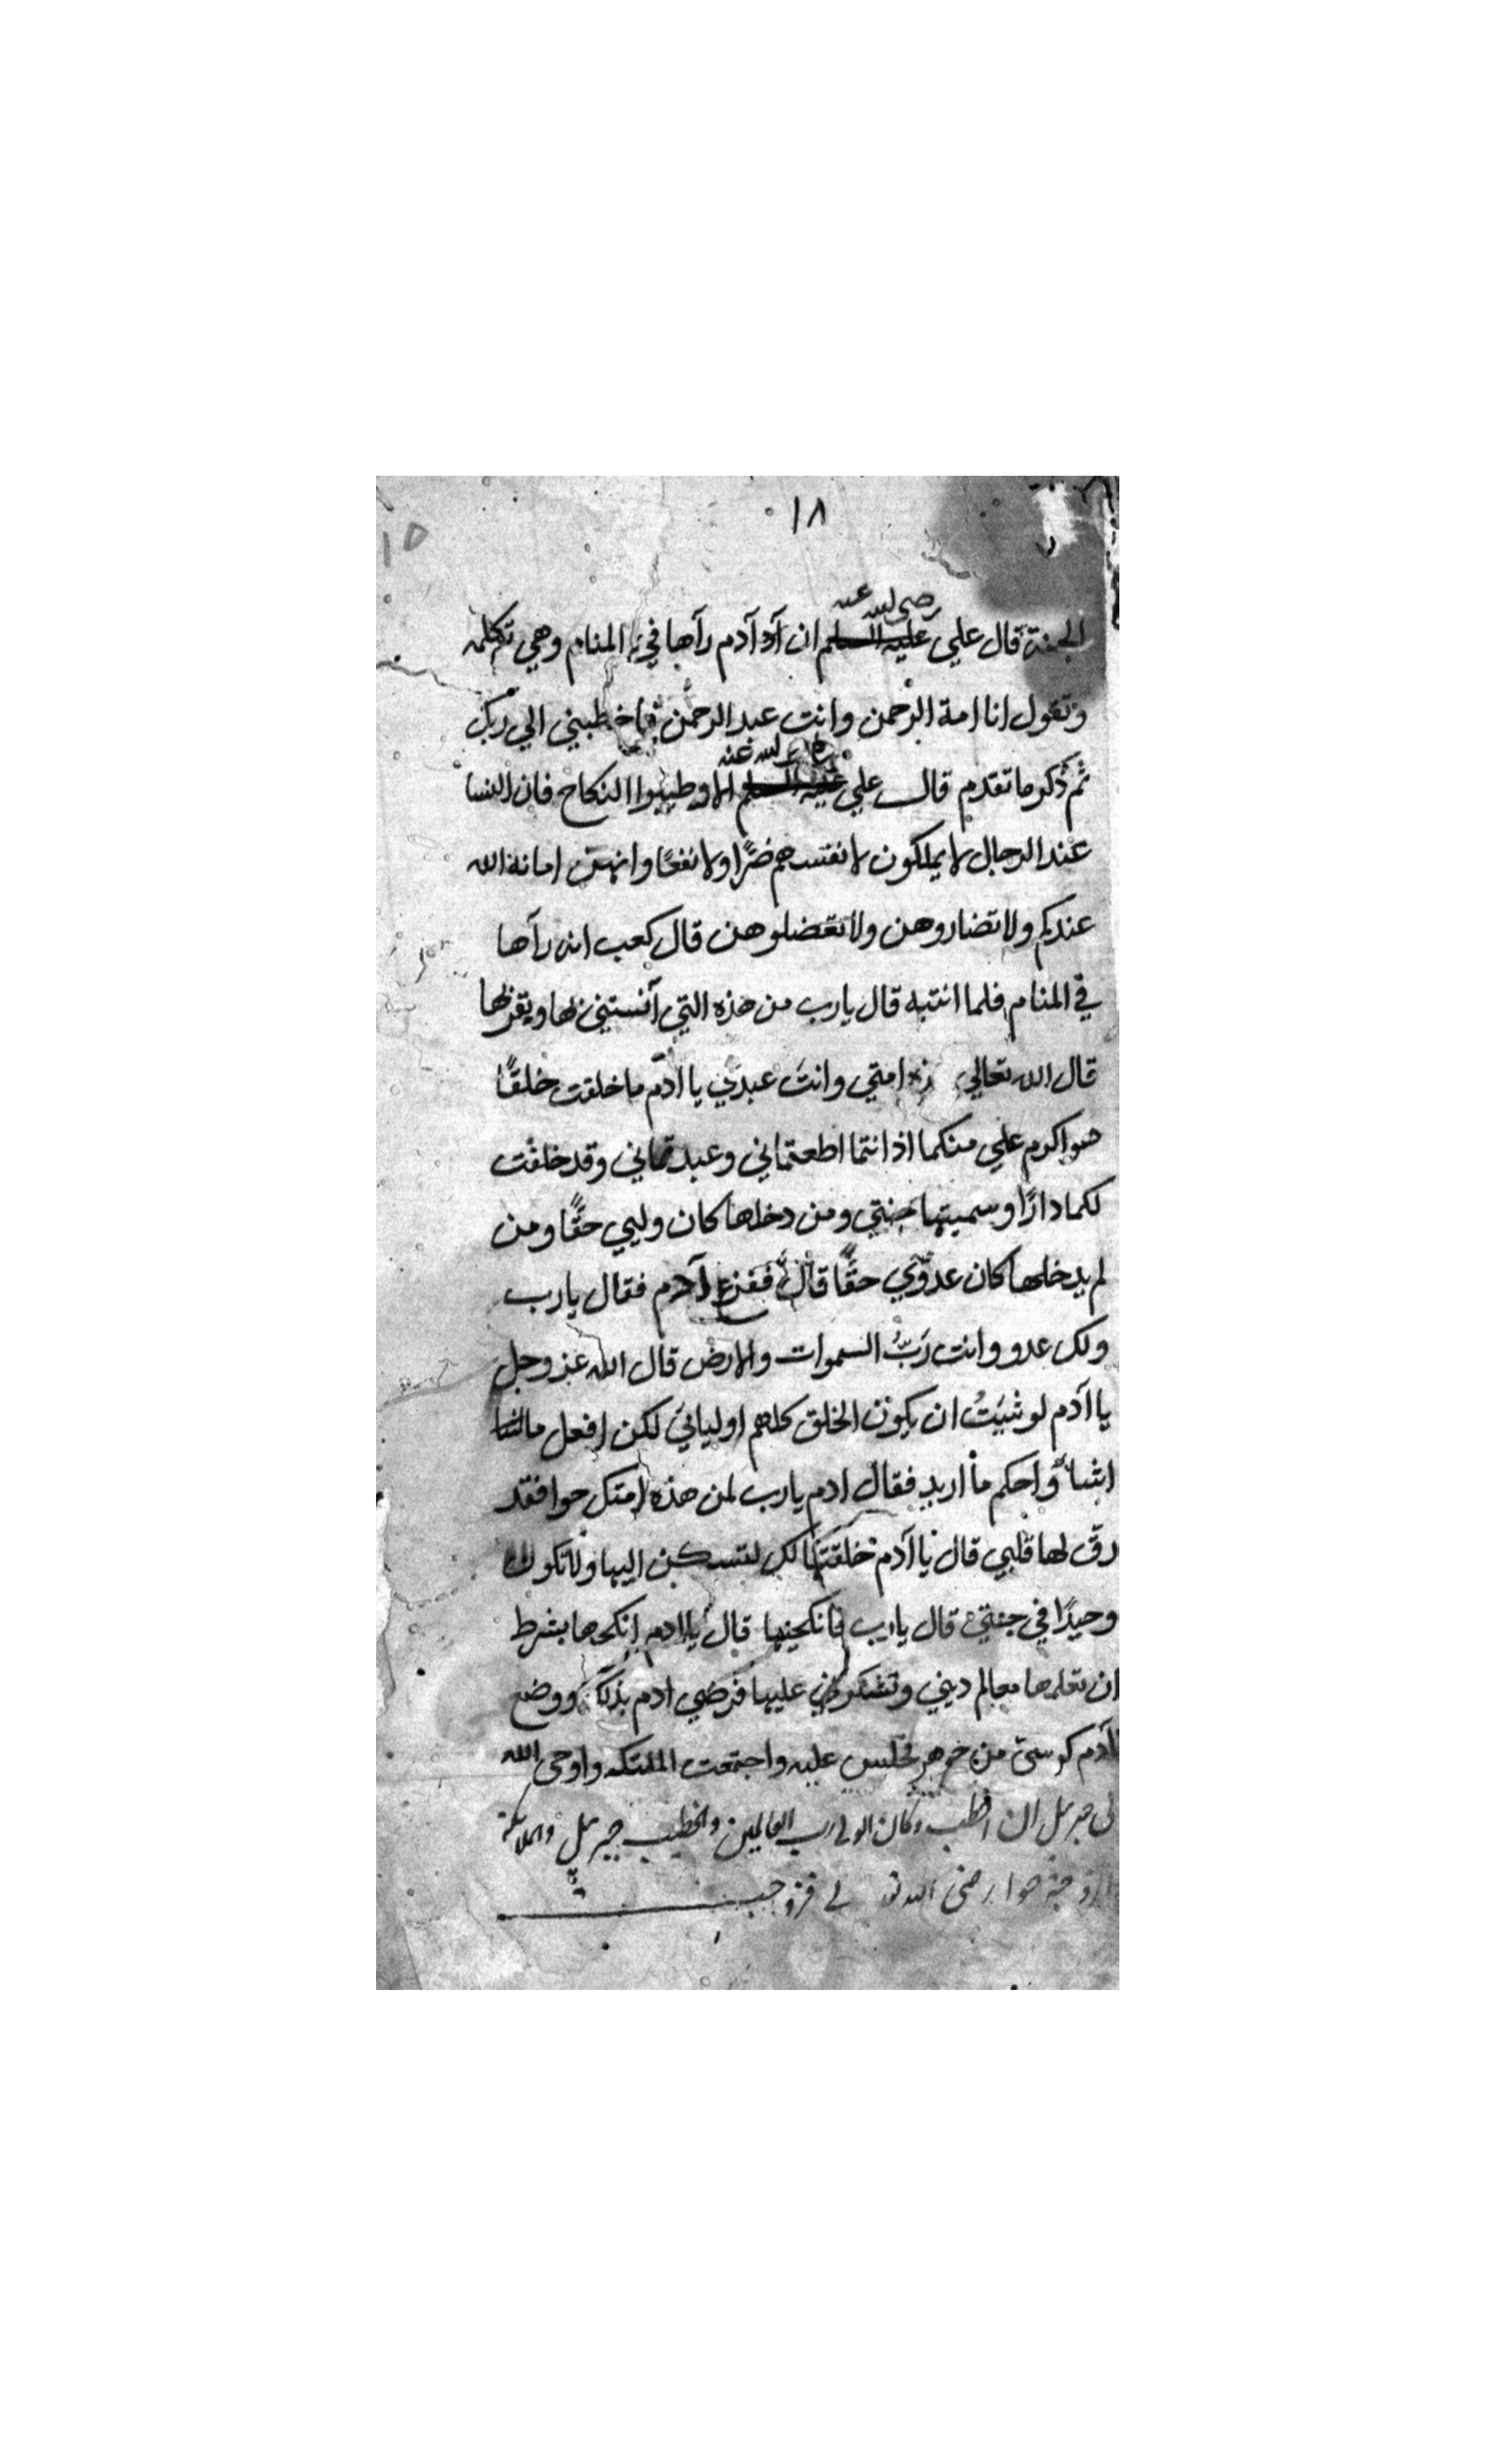 ١٨
١٥
رضي الله عنه
الجنة قال علي عليه السلم ان آد آدم رآها في المنام وهي تكلمه
وتقول انا امة الرحمن وانت عبد الرحمن فاخطبني الي ربك
الله عنه
ثم ذكر ما تقدم قال علي عليه السلم الا وطيبوا النكاح فان النسا
عند الرجال لا يملكون لانفسهم ضرًا ولا نفعًا وانهن امانة الله
عندكم ولا تضاروهن ولا تعضلوهن قال كعب انه رآها
في المنام فلما انتبه قال يا رب من هذه التي آنستني بها وبقربها
قال الله تعالي امتي وانت عبدي يا ادم ما خلقت خلقًا
هو اكرم علي منكما اذ انتما اطعتماني وعبدتماني وقد خلقت
لكما دارًا وسميتها جنتي ومن دخلها كان وليي حقًا ومن
لم يدخلها كان عدوّي حقًا قال ففزع آدم فقال يا رب
ولك عدو وانت رَبُّ السموات والارض قال الله عز وجل
يا آدم لو شيتُ ان يكون الخلق كلهم اوليائي لكن افعل ما
اشاء واحكم ما اريد فقال ادم يا رب لمن هذه امتك حوا فقد
رقّ لها قلبي قال يا آدم خلقتها لك لتسكن اليها ولا تكون
وحيدًا في جنتي قال يا رب فانكحنيها قال يا ادم انكحها بشرط
ان تعلمها معالم ديني وتشكرني عليها فرضي ادم بذلك ووضع
لآدم كرسي من جوهر فجلس عليه واجتمعت الملئكه واوحى الله
الى جبريل ان اخطب وكان الولي رب العالمين والخطيب جبريل والملائكة
والزوجة حوا رضى الله فزوجت